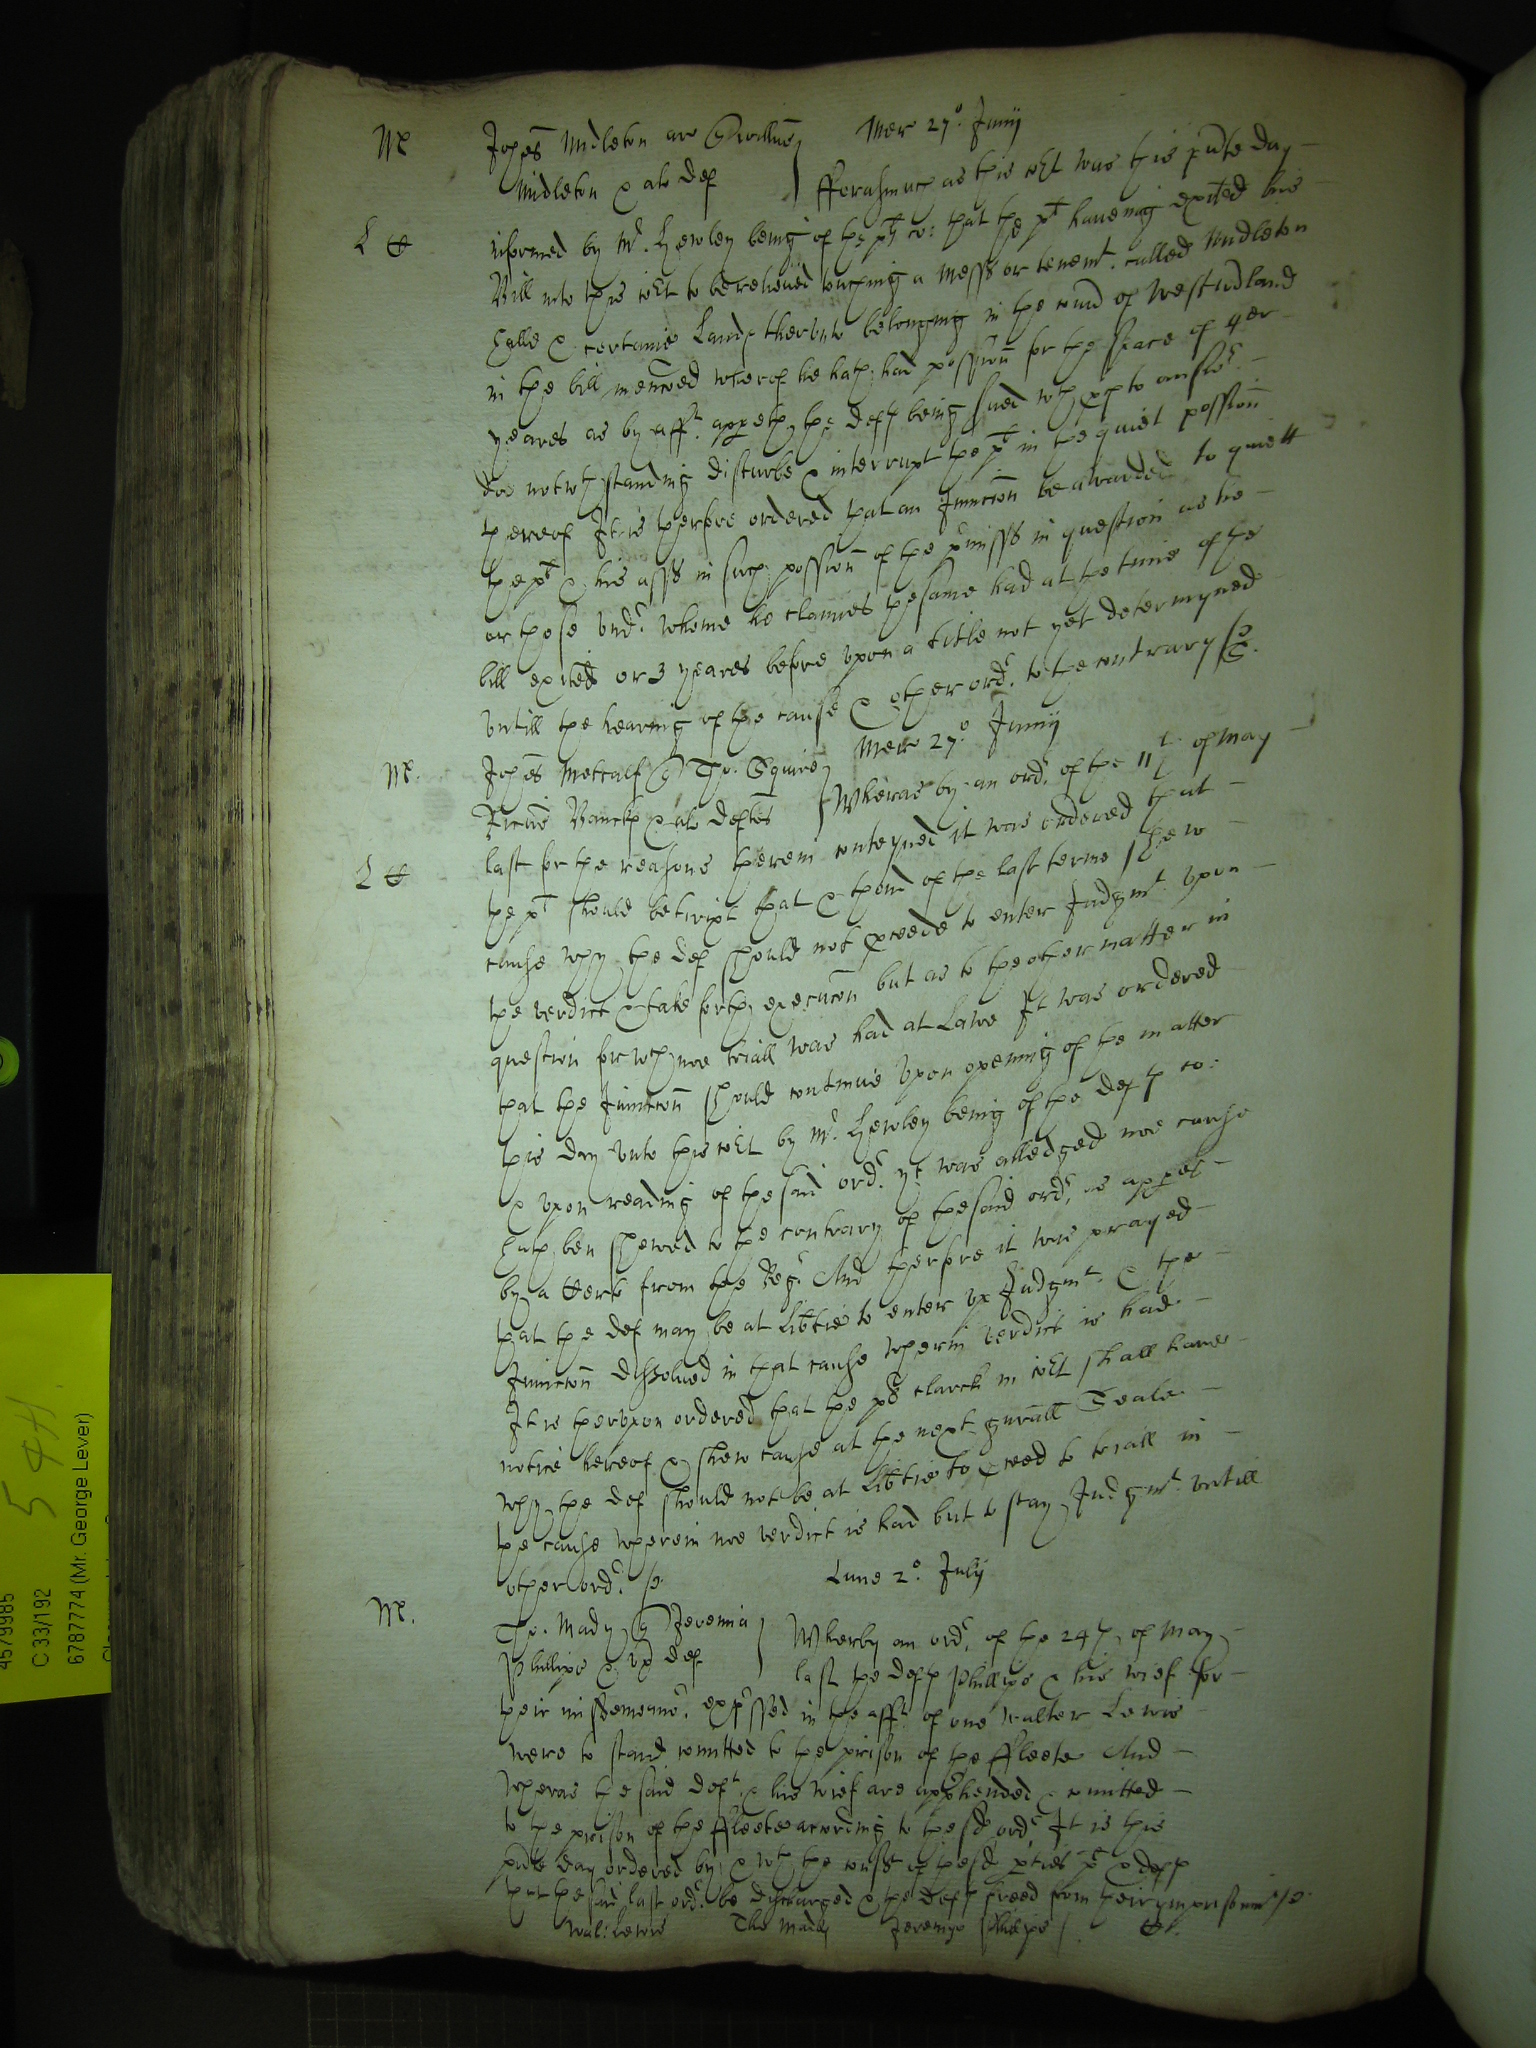 M Johes Midleton ar qr Willm̄ Mer 27o. Junij
Midleton & al def fforasmuch as this cort was this pn̄te day
L informed by Mr. Hewley being of the plts co: that the plt haueing exited his
Bill into this cort to be releiued touching a mess or tenemt. called Midleton
Halle & certaine Lands therunto belonging in the Coun̄ of Westmdland
in the bill menc̄oed wherof he hath had possion̄ for the space of 4er
yeares as by afft. appeth, the defts being sued wth pces to answr.
doe notwthstanding disturbe & interrupt the plt in the quiet possion̄
thereof It is therfore ordered that an Iniuncc̄on be awarded to quiett
the plt & his asss in such possion̄ of the pmisss in question as he
or those vndr. whome he claimes the same had at the time of the
bill exited or 3 yeares before vpon a title not yet determyned
vntill the hearing of the cause & other ordr. to the contrary
M. Johes Metcalf qr Tho. Squire Mer 27o. Junij
Ricūs Banckes & al defts Wheras by an ordr. of the 11th of May
L last for the reasons therein conteyned it was ordered that
the plt should betwixt that & thend of the last terme shew
cause why the def should not pceede to enter Judgmt. vpon
the verdict & take forth execuc̄on but as to the other matter in
question for wch noe triall was had at Lawe It was ordered
that the Iniuncc̄on should continue Vpon opening of the matter
this day vnto this cort by Mr. Hewley being of the defts co:
& vpon reading of the said ordr. yt was alledged noe cause
hath ben shewed to the contrary of the said ordr. as appes
by a Certt from the Regr. And therfore it was prayed
that the def may be at Lib̄tie to enter vp Judgmt. & the
Iniuncc̄on dissolued in that cause wherin verdict is had
It is therupon ordered that the plts clarck in cort shall haue
notice hereof & shew cause at the next gen̄rall Seale
why the def should not be at Lib̄tie to pceed to triall in
the cause wherein noe verdict is had but to stay Judgmt. vntill
other ordr. Lune 2o. July
M. Tho. Mady qr Jeremia Wherby an ordr. of the 24th. of May
Phillips & vx def last the defts Phillips & his wief for
their misdemeanor. expssed in the afft. of one Walter Lewis
were to stand com̄itted to the prison of the ffleete And
wheras the said deft. & his wief are apphended & com̄itted
to the prison of the ffleete according to the sd ordr. It is this
pn̄te day ordered by & wth the consst of the sd pties plt & defts
that the said last ordr. be discharged & the defts freed from their ymprisonmt
Wal: Lewis Tho Mady Jeremye Phillips
4579985
C 33/192
6787774 (Mr. George Lever)